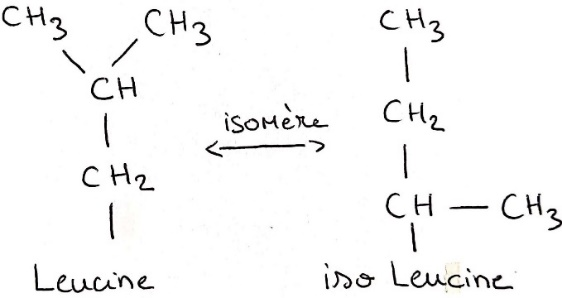 CH3 CH3
CH
CH2
Leucine
isomère
CH3
CH2
CH — CH3
iso Leucine